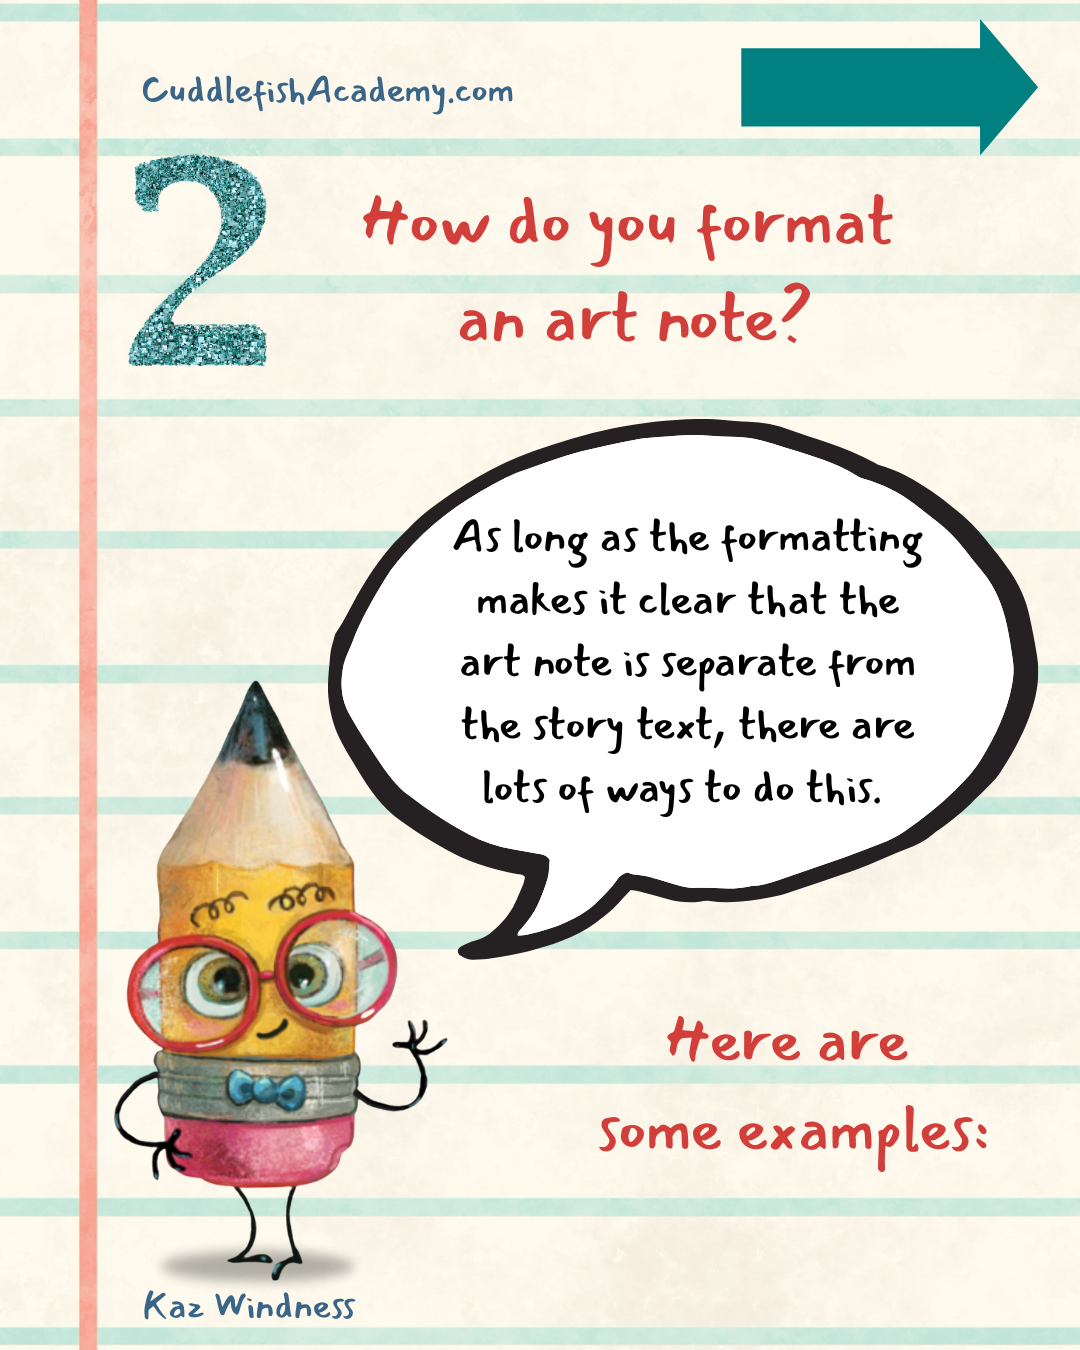 CuddlefishAcademy.com
2
How do you format
an art note?
As long as the formatting
makes it clear that the
art note is separate from
the story text, there are
lots of ways to do this.
Here are
some examples:
Kaz Windness